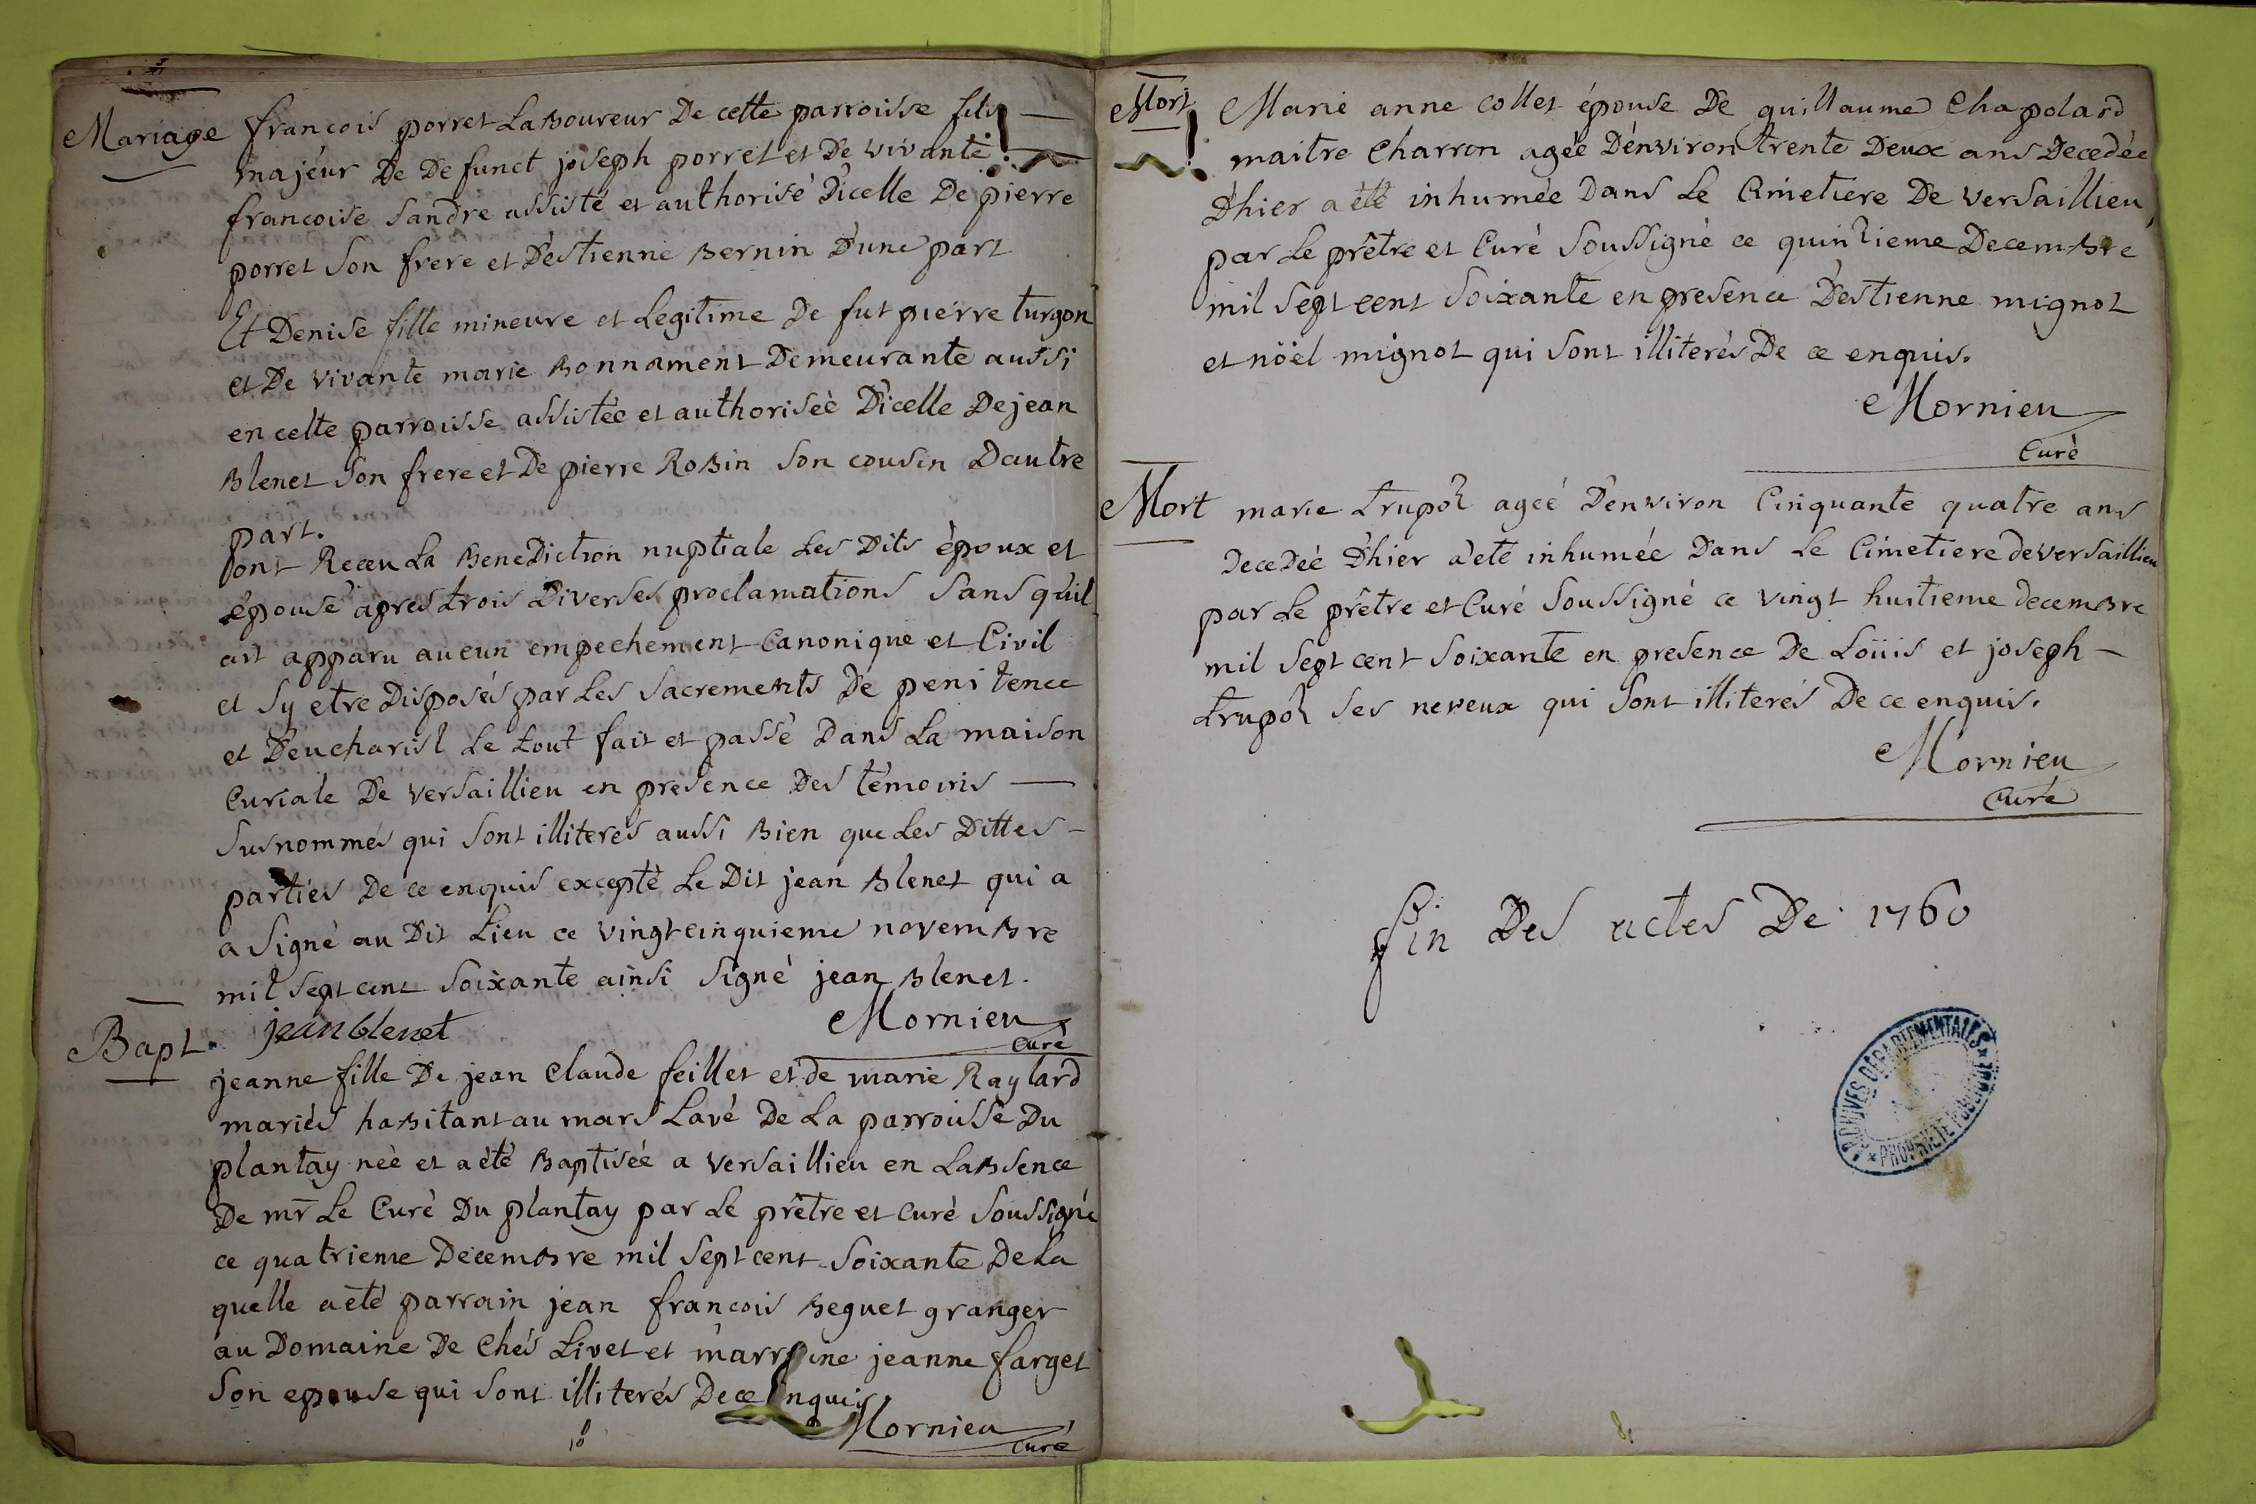 Mariage
francois porret Laboureur De cette parroisse fils
majeur De Defunct joseph porret et De vivante
francoise Sandre assisté et authorisé D'icelle De pierre
porret Son frere et D'estienne Bernin D'une part
Et Denise fille mineure et Legitime De fut pierre turgon
et De vivante marie Bonnament Demeurante aussi
en cette parroisse assistée et authoriseè D'icelle De jean
Blenet Son frere et De pierre Robin Son cousin Dautre
part.
ont Receu La BeneDiction nuptiale Les Dits époux et
épouse apres trois Diverses proclamations Sans qu'il
ait apparu aucun empechement Canonique et Civil
et Sy etre Disposés par Les Sacrements De penitence
et D'eucharist Le tout fait et passé Dans La maison
Curiale De Versaillieu en presence Des témoins
Susnommés qui Sont illiterés aussi Bien que Les Dittes
parties De ce enquis excepté Le Dit jean Blenet qui a
a Signé au Dit Lieu ce vingt cinquieme novembre
mil Sept cent Soixante ainsi Signé jean Blenet.
jean blenet
Mornieu
Curé
Bapt
jeanne fille De jean Claude feillet et de marie Raylard
mariés habitant au mars Lavé De La parroisse Du
plantay neè et a été Baptiseé a Versaillieu en Labsence
De mr Le Curé Du plantay par Le prêtre et Curé Soussigné
ce quatrieme Decembre mil Sept cent Soixante De La
quelle a eté parrain jean francois Beguet granger
au Domaine De Chés Livet et marraine jeanne farget
Son epouse qui Sont illiterés De ce enquis
Mornieu
Curé
Mort
Marie anne Collet épouse De guillaume Chapolard
maitre Charron agée D'environ trente Deux ans Decedée
D'hier a été inhumée Dans Le Cimetiere De Versaillieu,
par Le prêtre et Curé Soussigné ce quinzieme Decembre
mil Sept cent Soixante en presence D'estienne mignot
et nöel mignot qui Sont illiterés De ce enquis.
Mornieu
Curé
Mort
marie trupoz ageé D'environ Cinquante quatre ans
DeceDeé D'hier a eté inhumée Dans Le Cimetiere de versaillieu
par Le prêtre et Curé Soussigné ce vingt huitieme decembre
mil Sept cent Soixante en presence De Loüis et joseph
trupoz Ses neveux qui Sont illiterés De ce enquis.
Mornieu
Curé
fin Des actes De 1760
ARCHIVES DÉPARTEMENTALES
PROPRIÉTÉ PUBLIQUE